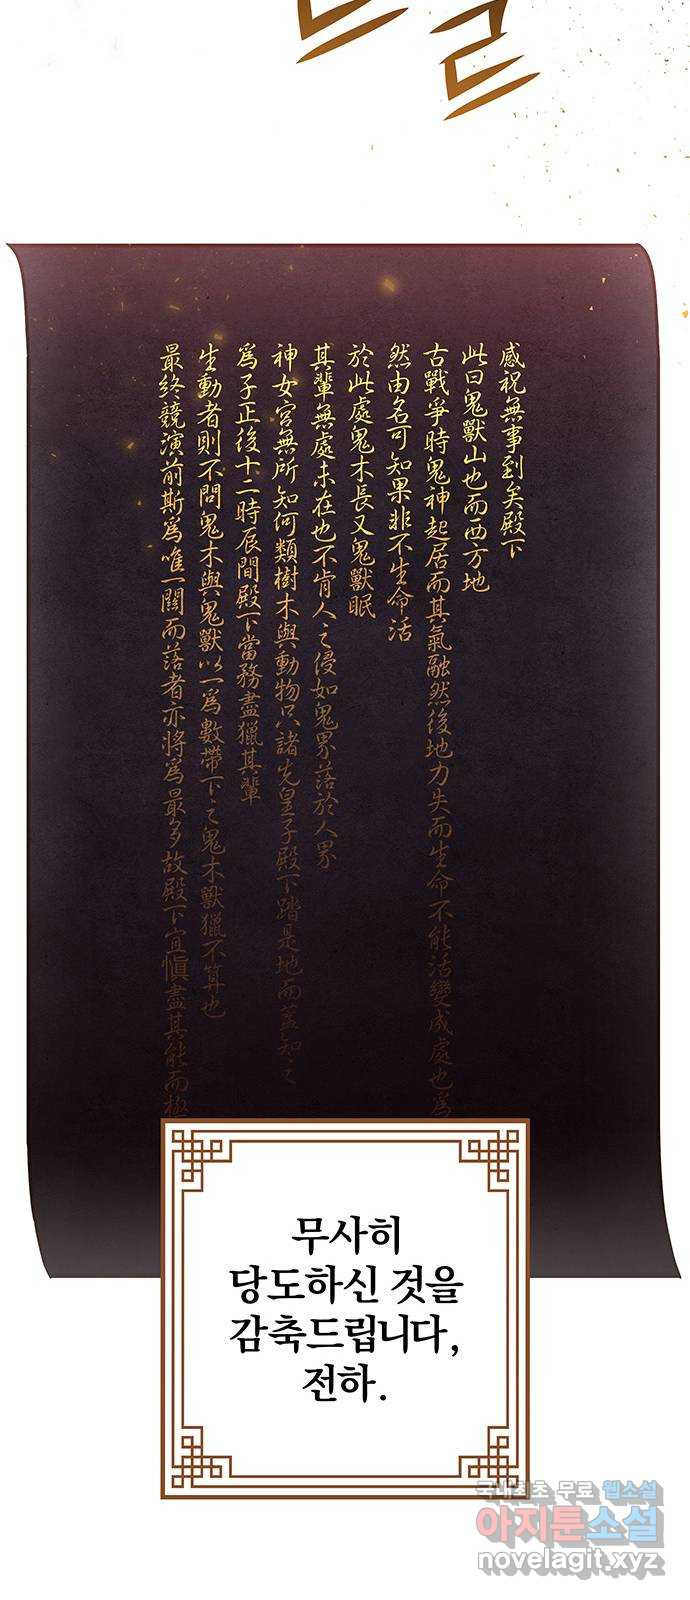 感祝無事到矣殿下
此曰鬼獸山也而西方地
古戰爭時鬼神起居而其氣融然後地力失而生命不能活變成處也爲
然由名可知果非不生命活
於此處鬼木長又鬼獸眠
其輩無處未在也不肯人之侵如鬼界落於人界
神女宮無所知何類樹木與動物只諸先皇子殿下踏是地而蓋知之
爲子正後十二時辰間殿下當務盡獵其輩
生動者則不問鬼木與鬼獸以一爲數帶下之鬼木獸獵不算也
最終競演前斯爲唯一關而落者亦將爲最多故殿下宜愼盡其能而極
무사히
당도하신 것을
감축드립니다,
전하.
국내최초 무료 웹소설
아지툰소설
novelagit.xyz